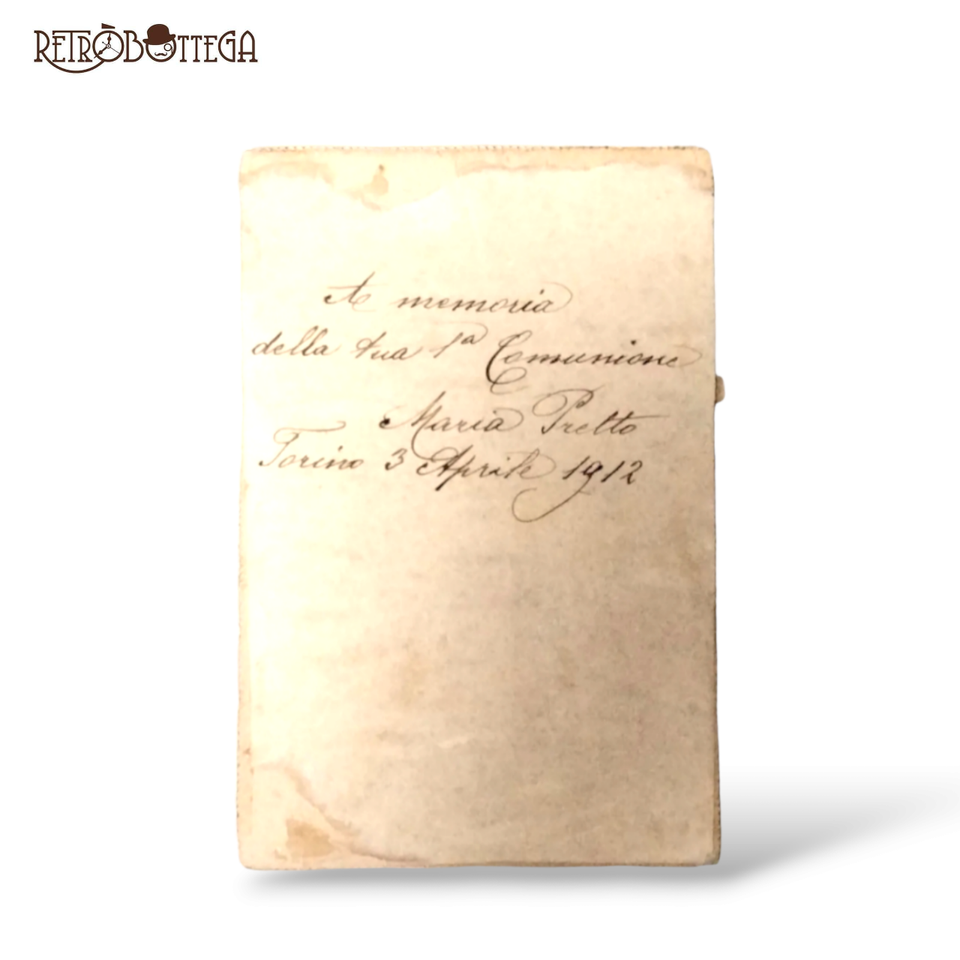 RETRÒBOTTEGA
A memoria
della tua 1ª Comunione
Maria Pretto
Torino 3 Aprile 1912